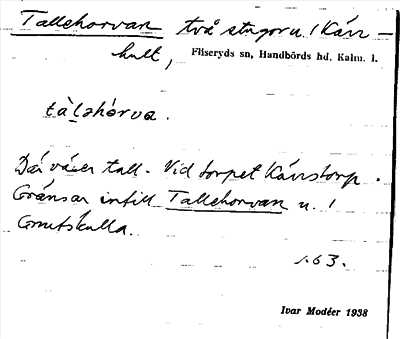 Tallehorvan två stugor u. / Kärr-
hult,
Fliseryds sn, Handbörds hd, Kalm. l.
tàl̥əhórva.
Där växer tall. Vid torpet Kärrstorp.
Gränsar intill Tallehorvan u. /
Grutskulla.
s. 63.
Ivar Modéer 1938